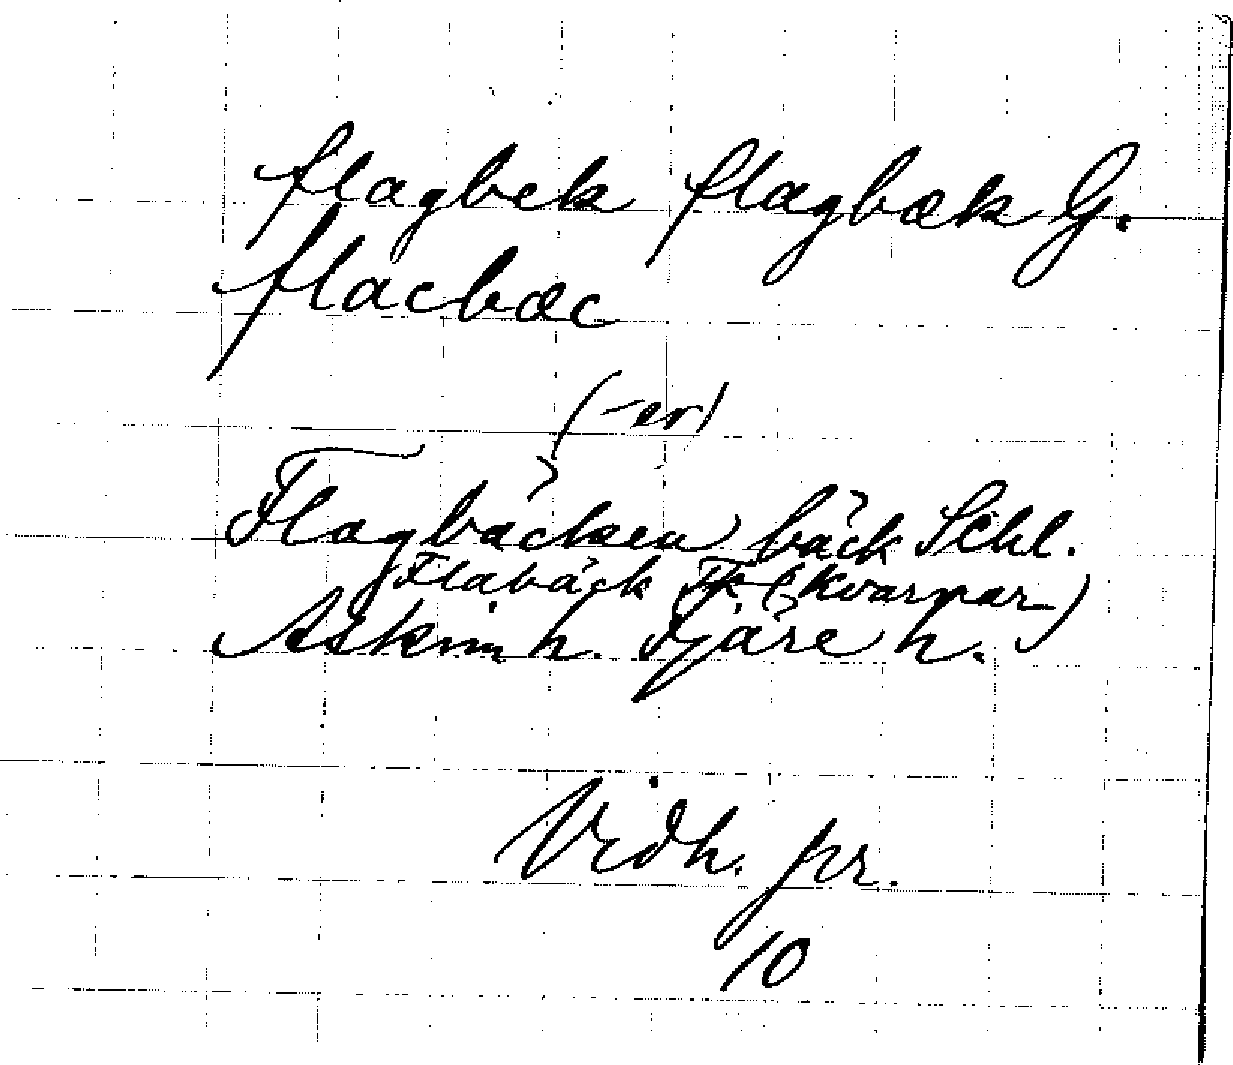 flagbek flagbæk G.
flacbæc
(-er)
Flagbäcken bäck Schl.
Flabäck Tk (Kvarnar)
Askim h. Fjäre h.
Vidh. pr.
10